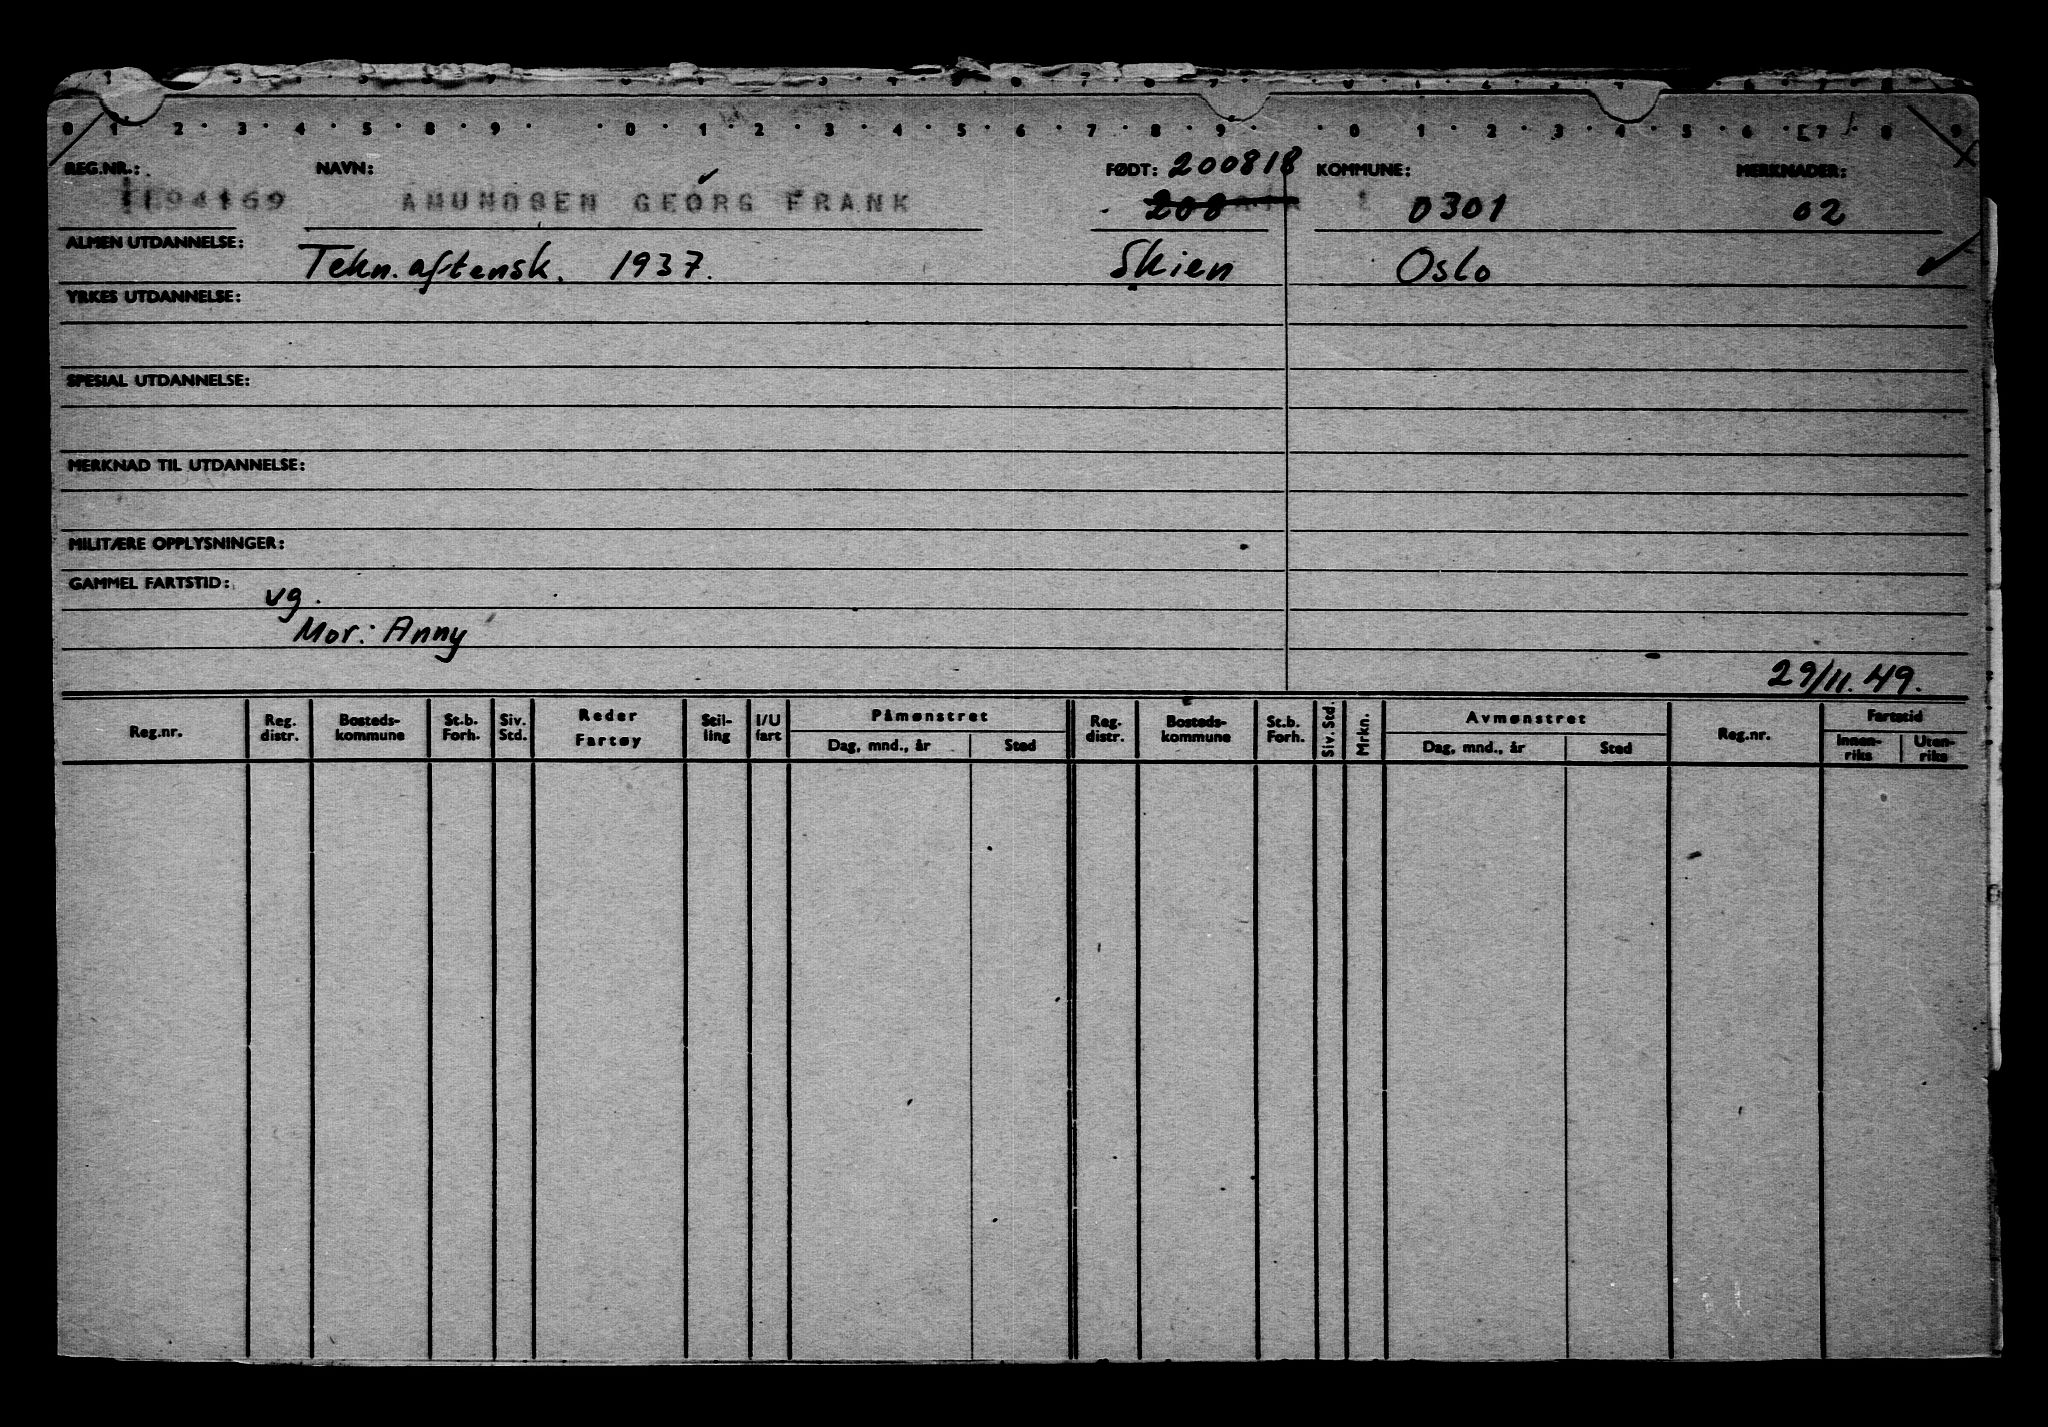 0 1 2 3 4 5 6 7 8 9 0 1 2 3 4 5 6 7 8 9 0 1 2 3 4 5 6 7 8 9
REG.NR.: NAVN: FØDT: 200818 KOMMUNE: MERKNADER:
AMUNDSEN GEORG FRANK 0301 02
ALMEN UTDANNELSE: Tekn. aftensk. 1937. Skien Oslo
YRKES UTDANNELSE:
SPESIAL UTDANNELSE:
MERKNAD TIL UTDANNELSE:
MILITÆRE OPPLYSNINGER:
GAMMEL FARTSTID: vg.
Mor: Anny
29/11.49.
Reg.nr. Reg. distr. Bosteds-kommune St.b. Forh. Siv. Std. Reder Fartøy Stil-ling I/U fart Påmønstret Dag, mnd., år Sted Reg. distr. Bosteds-kommune St.b. Forh. Siv. Std. Mrkn. Avmønstret Dag, mnd., år Sted Reg.nr. Fartstid Innen-riks Uten-riks